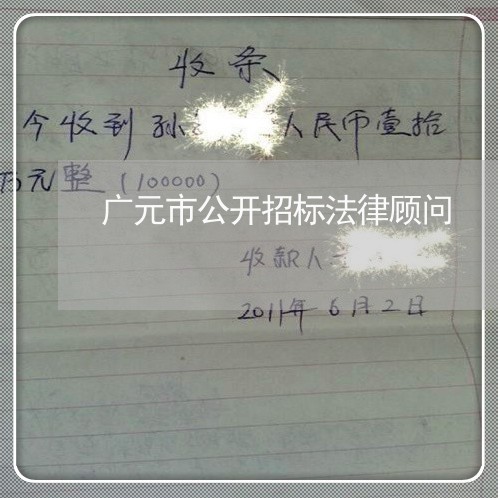 收条
今收到孙 人民币壹拾
万元整(100000)
广元市公开招标法律顾问
收款人
2011年6月2日